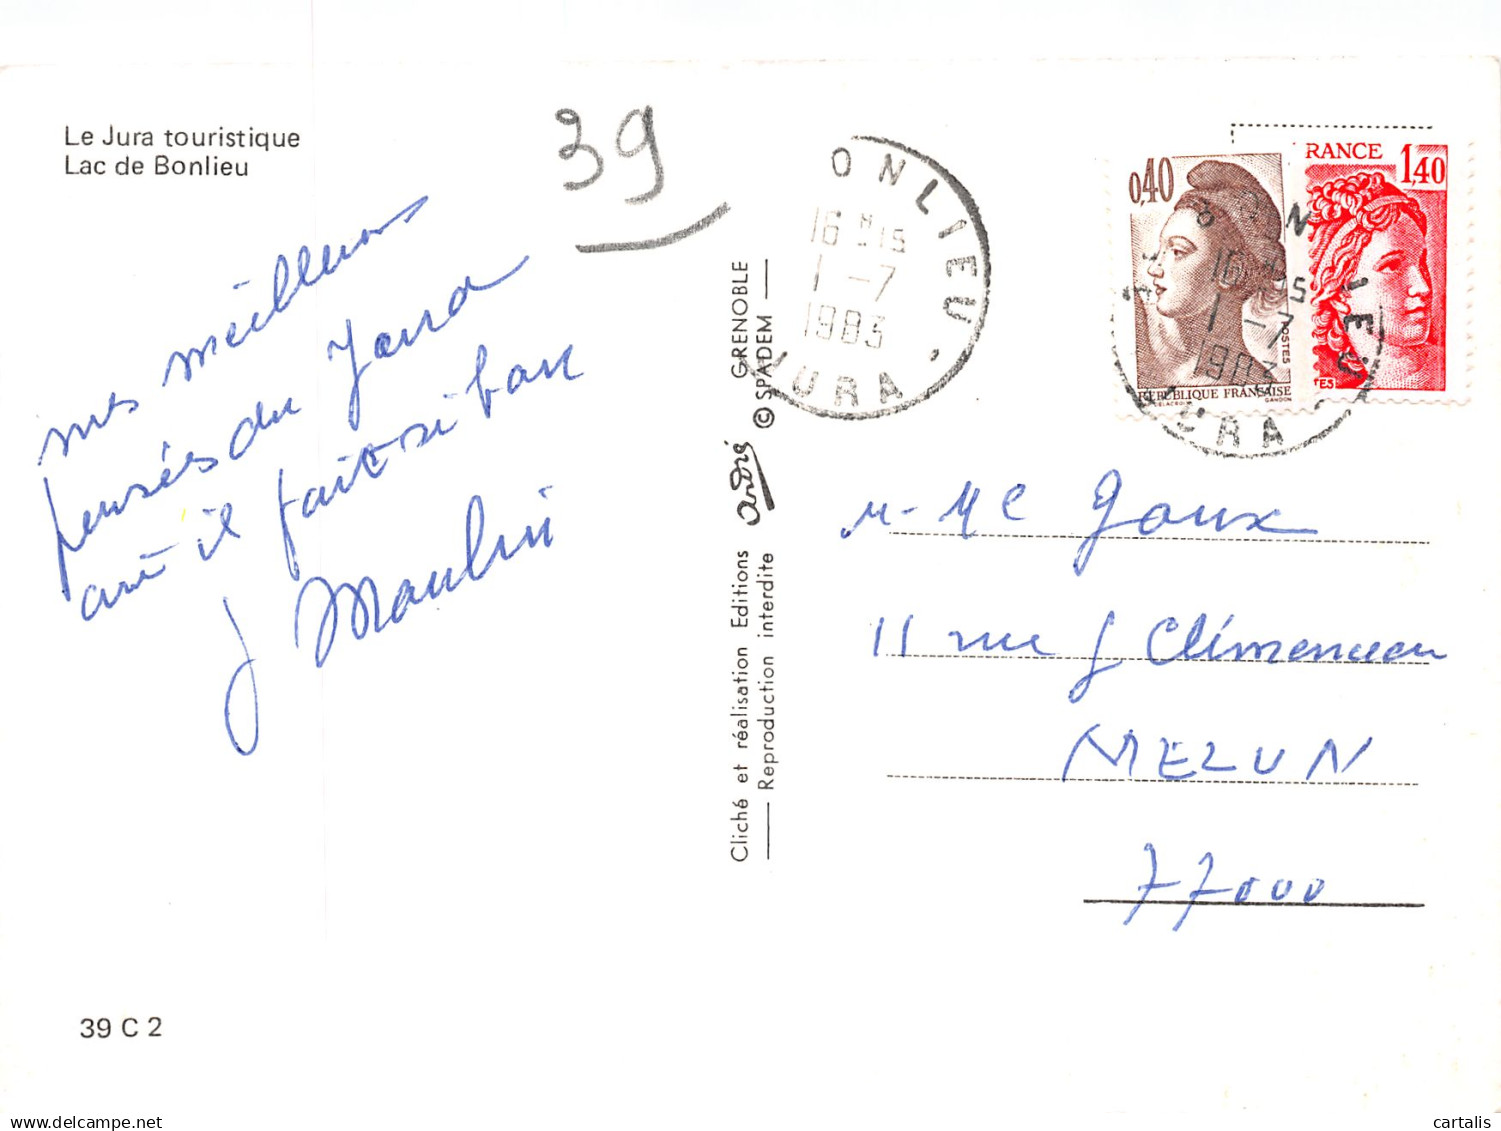 Le Jura touristique
Lac de Bonlieu
39
mes meilleures
pensées du Jura
où il fait si bon
J Moulin
39 C 2
Cliché et réalisation Editions andré GRENOBLE
Reproduction interdite © SPADEM
ONLIEU
16 H 15
1 - 7
1983
JURA
0,40
POSTES
REPUBLIQUE FRANÇAISE
DELACROIX GANDON
RANCE 1,40
TES
16 H 15
1 - 7
1983
JURA
M - Me Goux
11 rue G Clémenceau
MELUN
77000
cartalis